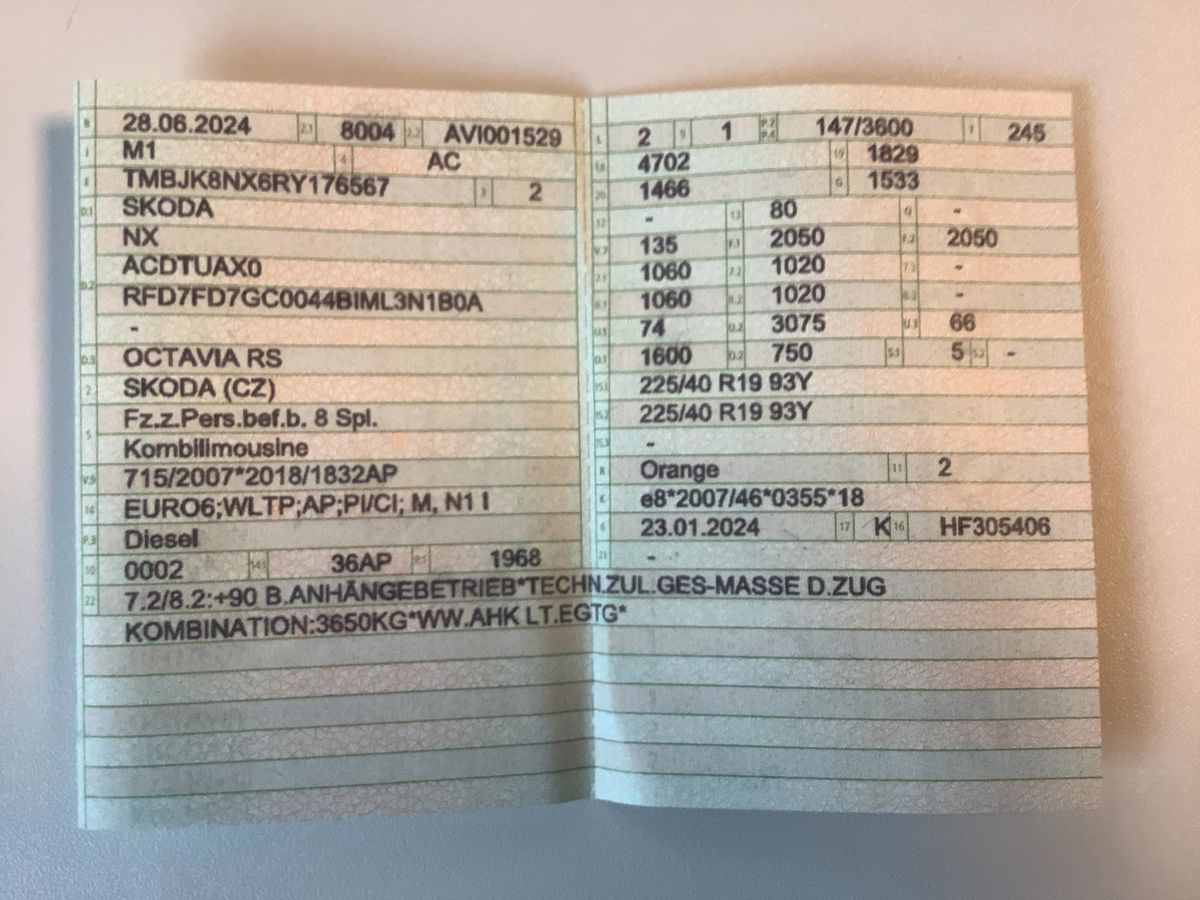 B 28.06.2024 2.1 8004 2.2 AVI001529
J M1 4 AC
E TMBJK8NX6RY176567 3 2
D.1 SKODA
NX
D.2 ACDTUAX0
RFD7FD7GC0044BIML3N1B0A
-
D.3 OCTAVIA RS
2 SKODA (CZ)
5 Fz.z.Pers.bef.b. 8 Spl.
Kombilimousine
V.9 715/2007*2018/1832AP
14 EURO6;WLTP;AP;PI/CI; M, N1 I
P.3 Diesel
10 0002 14.1 36AP P.1 1968
22 7.2/8.2:+90 B.ANHÄNGEBETRIEB*TECHN.ZUL.GES-MASSE D.ZUG
KOMBINATION:3650KG*WW.AHK LT.EGTG*
L 2 9 1 P.2 P.4 147/3600 T 245
18 4702 19 1829
20 1466 G 1533
12 - 13 80 Q -
V.7 135 F.1 2050 F.2 2050
7.1 1060 7.2 1020 7.3 -
8.1 1060 8.2 1020 8.3 -
U.1 74 U.2 3075 U.3 66
O.1 1600 O.2 750 S.1 5 S.2 -
15.1 225/40 R19 93Y
15.2 225/40 R19 93Y
15.3 -
R Orange 11 2
K e8*2007/46*0355*18
6 23.01.2024 17 K 16 HF305406
21 -